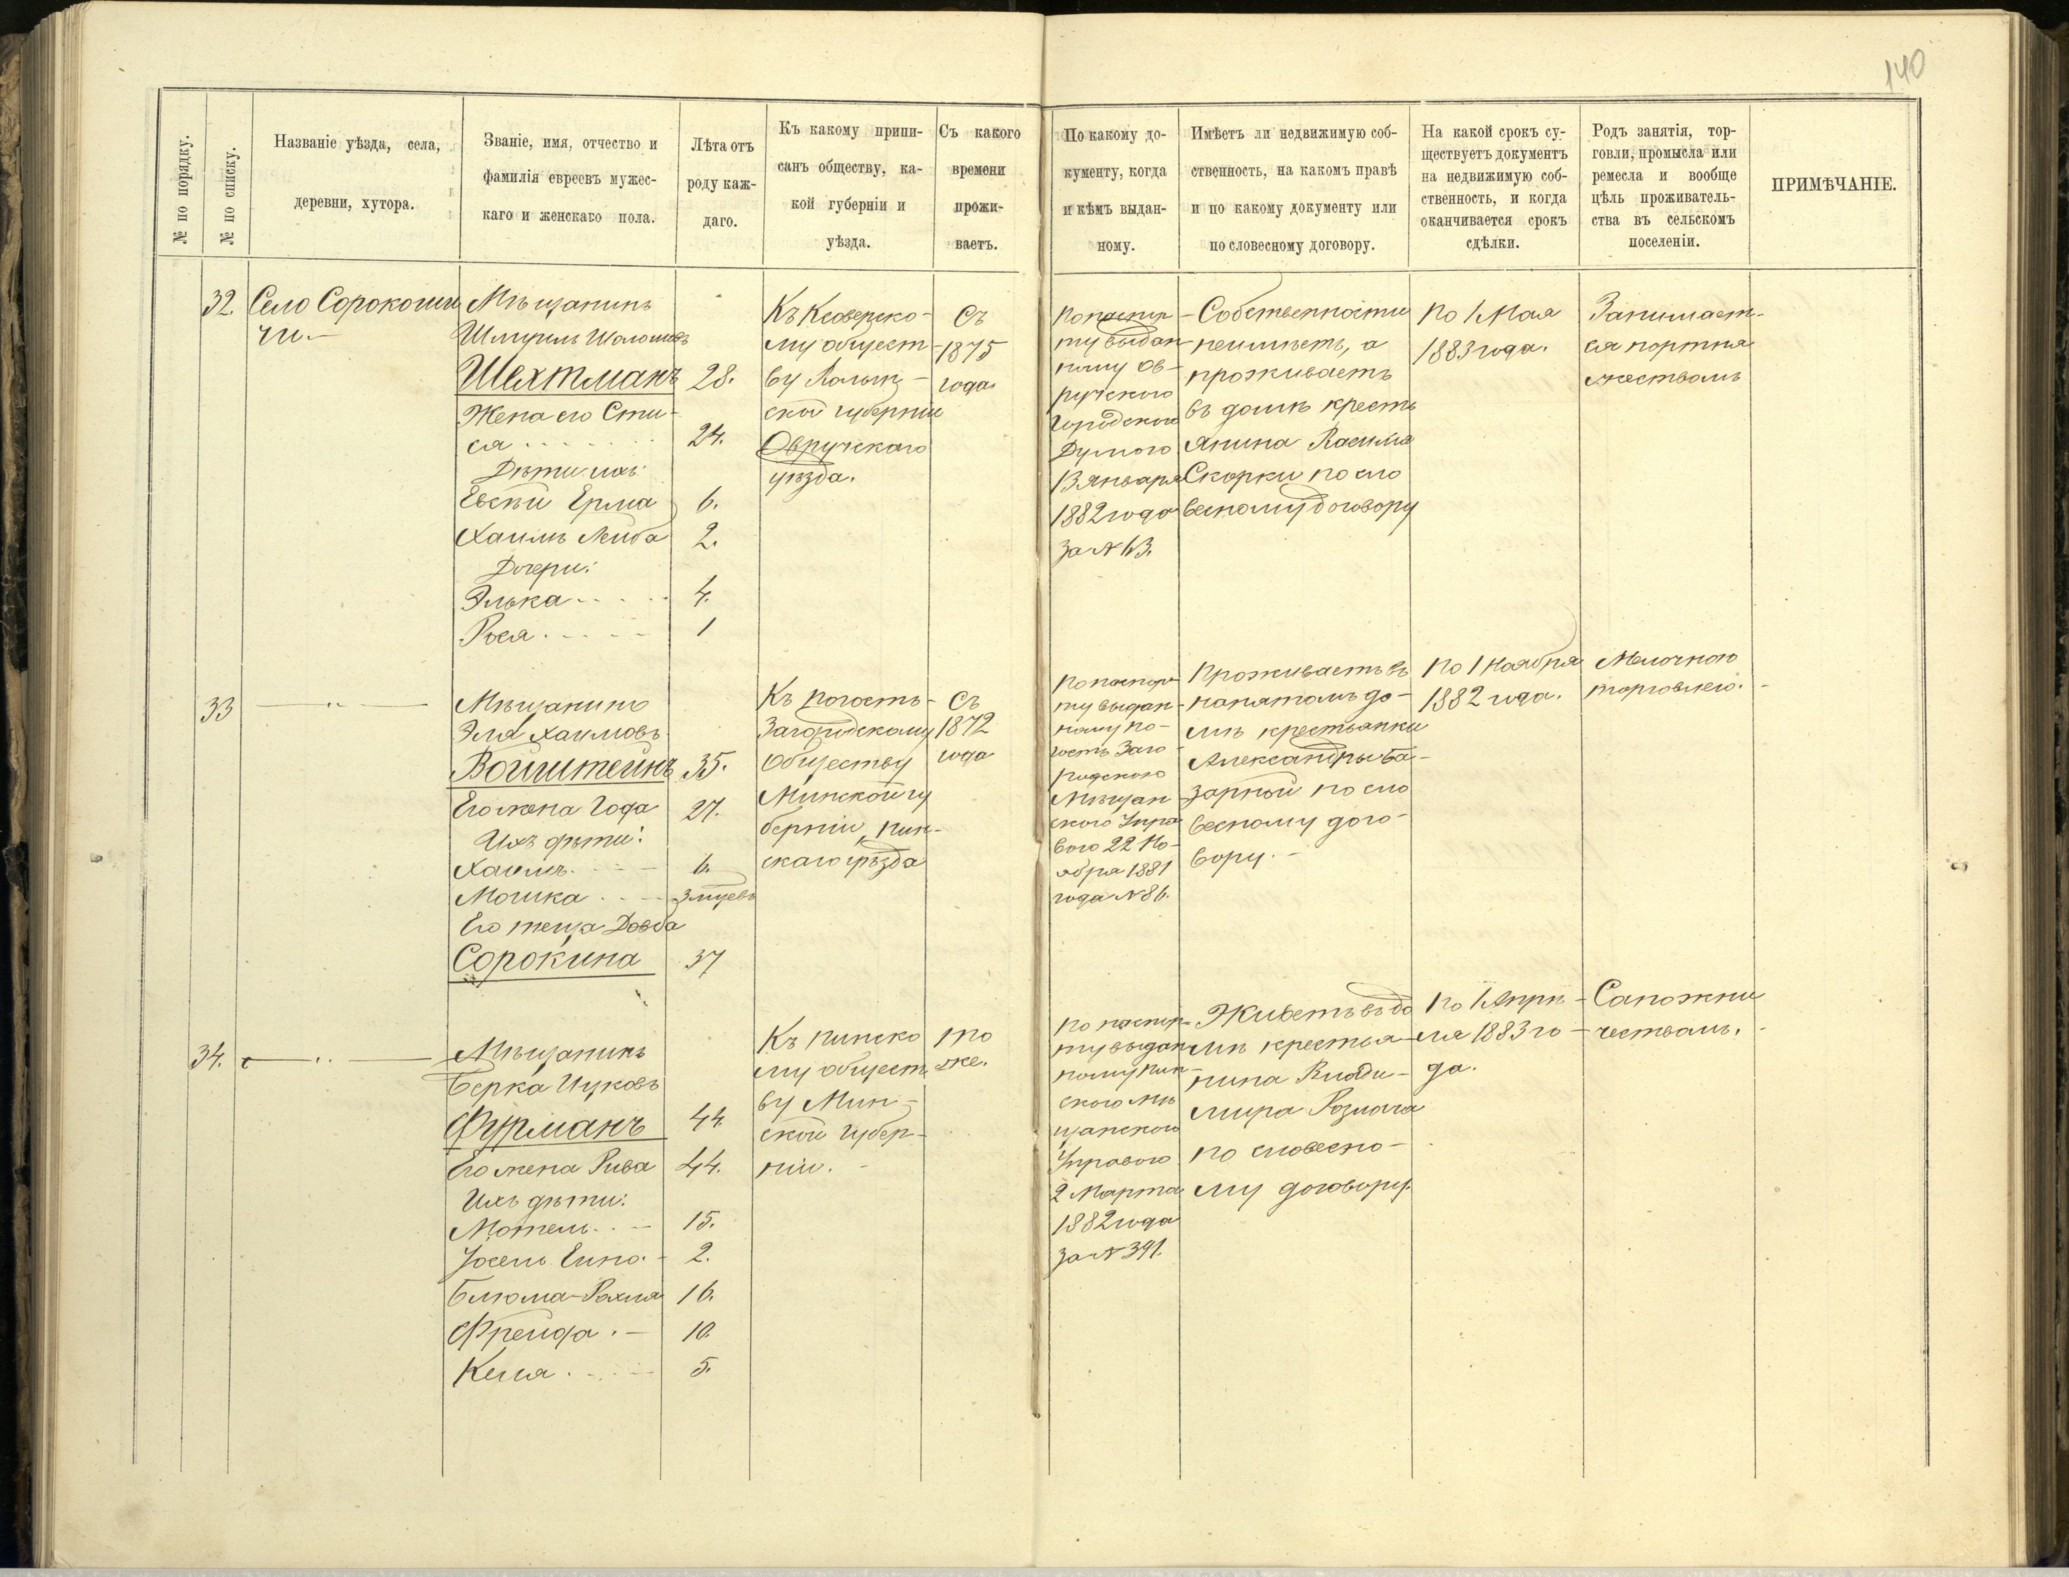 140
№ по порядку.
№ по списку.
Названіе уѣзда, села,
деревни, хутора.
Званіе, имя, отчество и
фамилія евреевъ мужес-
каго и женскаго пола.
Лѣта отъ
роду каж-
даго.
Къ какому припи-
санъ обществу, ка-
кой губерніи и
уѣзда.
Съ какого
времени
прожи-
ваетъ.
По какому до-
кументу, когда
и кѣмъ выдан-
ному.
Имѣетъ ли недвижимую соб-
ственность, на какомъ правѣ
и по какому документу или
по словесному договору.
На какой срокъ су-
ществуетъ документъ
на недвижимую соб-
ственность, и когда
оканчивается срокъ
сдѣлки.
Родъ занятія, тор-
говли, промысла или
ремесла и вообще
цѣль проживатель-
ства въ сельскомъ
поселеніи.
ПРИМѢЧАНІЕ.
32.
Село Сорокоши
чи.-
Мѣщанинъ
Шмуиль Шоломовъ
Шехтманъ 28.
Жена его Сти-
ся 24.
Дѣти ихъ:
Евсѣй Ерма 6.
Хаимъ Лейба 2.
Дочери:
Элька 4.
Рося 1
Къ
му общест-
ву Волын-
ской губерніи
Овручскаго
уѣзда.
Съ
1875
года
По паспор
ту выдан
ному Ов-
ручского
Городского
Думого
13 Января
1882 года
за № 63.
Собственности
неимѣетъ, а
проживаетъ
въ домѣ кресть
янина Василия
Скорки по сло
весному договору
По 1 Мая
1883 года.
Занимает-
ся портня
жествомъ
33 — " —
Мѣщанинъ
Эля Хаимовъ
Войштейнъ 35.
Его жена Года 27.
Ихъ дѣти:
Хаимъ 6.
Мошка 3 мѣсев
Его теща Довба
Сорокина 37
Къ Погостъ-
Загородскому
Обществу
Минской гу
берніи, Пин-
скаго уѣзда
Съ
1872
года
По паспор
ту выдан-
ному По-
гостъ Заго
родского
Мѣщан
ского Упра
вого 22 Но-
ября 1881
года № 86.
Проживаетъ въ
нанятомъ до-
мѣ крестьянки
Александры Ба-
зарной по сло
весному дого-
вору.-
По 1 Ноября
1882 года.
Мелочною
торговлею.
34. — " —
Мѣщанинъ
Берка Ицковъ
Фурманъ 44.
Его жена Рива 44.
Ихъ дѣти:
Мотель 15.
Іосель 2.
Блюма-Рохля 16.
Фрейда 10.
Кеня 5.
Къ Пинско
му общест
ву Мин-
ской губер-
ніи.-
то
же.
По паспор-
ту выдан
ному Пин-
ского Мѣ
щанского
Управого
2 Марта
1882 года
за № 391.
Живетъ въ до
мѣ крестья-
нина Влади-
мира Розмога
по словесно-
му договору.
По 1 Апрѣ-
ля 1883 го-
да.
Сапожни
чествомъ.